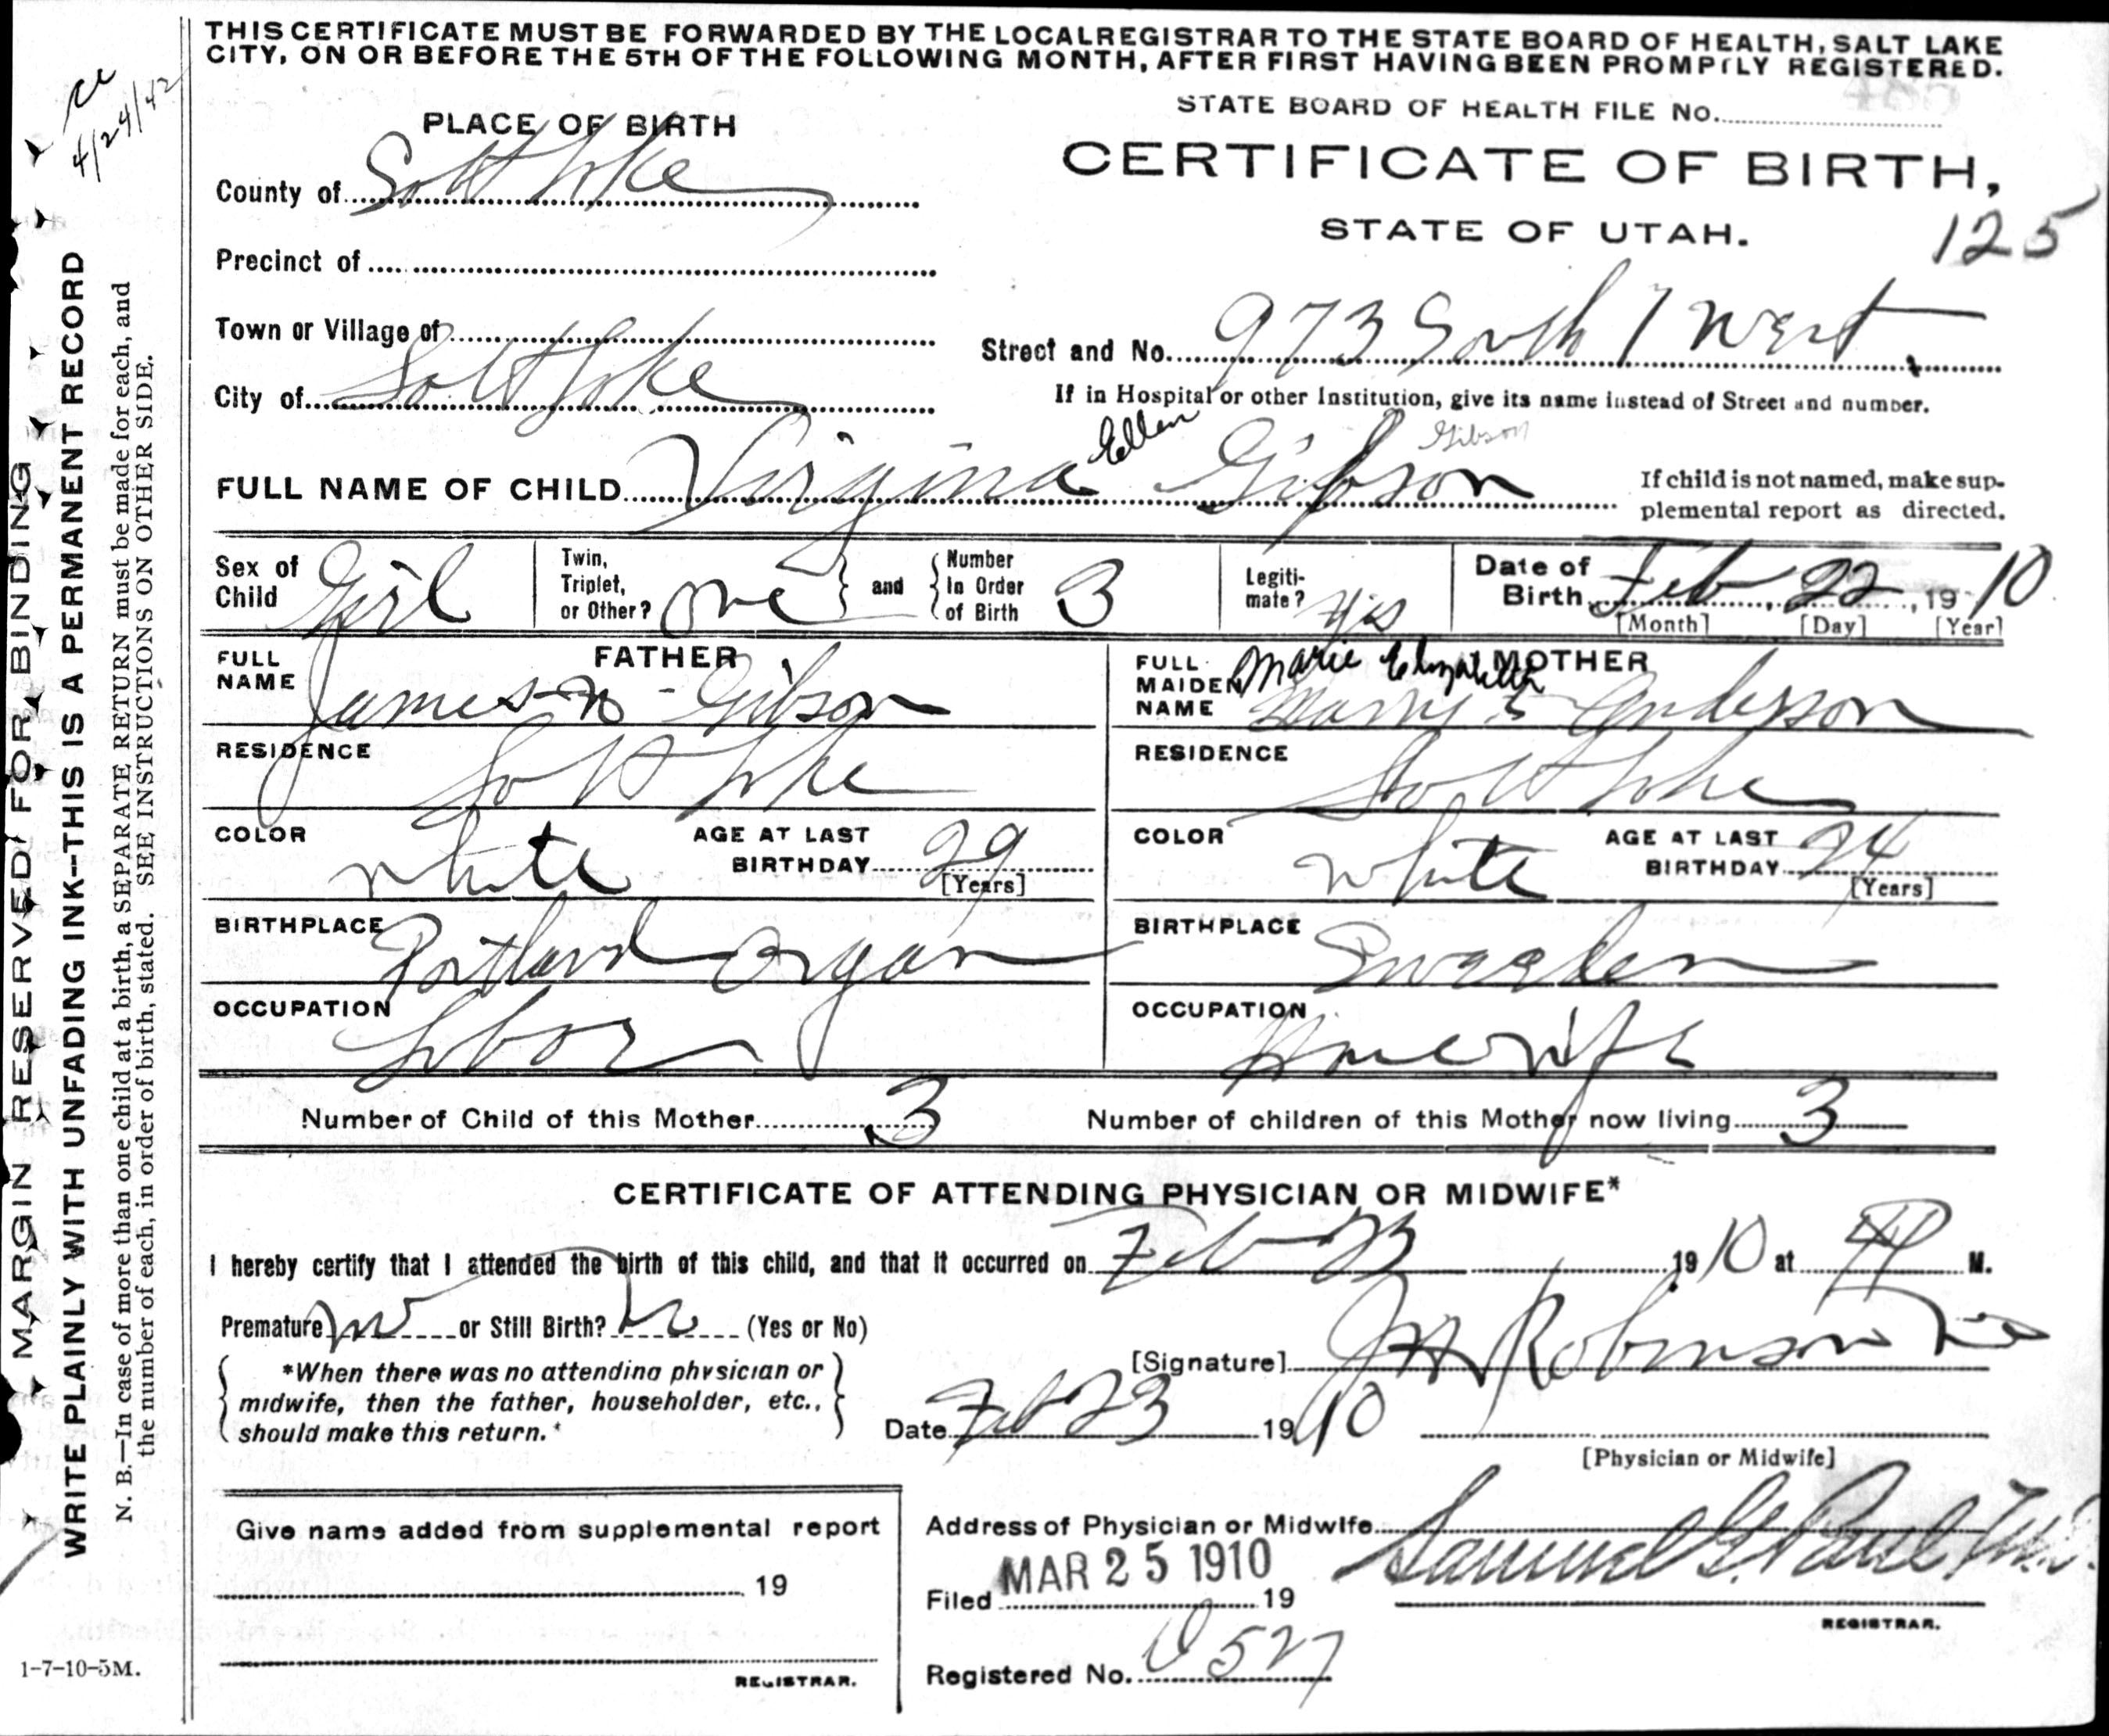 THIS CERTIFICATE MUST BE FORWARDED BY THE LOCAL REGISTRAR TO THE STATE BOARD OF HEALTH, SALT LAKE
CITY, ON OR BEFORE THE 5TH OF THE FOLLOWING MONTH, AFTER FIRST HAVING BEEN PROMPTLY REGISTERED.
4/24/42
STATE BOARD OF HEALTH FILE No.
PLACE OF BIRTH
CERTIFICATE OF BIRTH,
STATE OF UTAH.
125
County of Salt Lake
Precinct of
Town or Village of
Street and No. 973 South 1 West
City of Salt Lake
If in Hospital or other Institution, give its name instead of Street and number.
Ellen Gibson
FULL NAME OF CHILD Virginia Gibson
If child is not named, make sup-
plemental report as directed.
Sex of Child Girl
Twin, Triplet, or Other? one } and { Number In Order of Birth 3
Legiti-mate? Yes
Date of Birth Feb 22, 1910
[Month] [Day] [Year]
FATHER
FULL NAME James N Gibson
RESIDENCE Salt Lake
COLOR White AGE AT LAST BIRTHDAY 29
[Years]
BIRTHPLACE Portland Organ
OCCUPATION Labor
MOTHER
Marie Elizabeth
FULL MAIDEN NAME Marry E Anderson
RESIDENCE Salt Lake
COLOR White AGE AT LAST BIRTHDAY 24
[Years]
BIRTHPLACE Sweeden
OCCUPATION Housewife
Number of Child of this Mother 3
Number of children of this Mother now living 3
CERTIFICATE OF ATTENDING PHYSICIAN OR MIDWIFE*
I hereby certify that I attended the birth of this child, and that it occurred on Feb 23 1910 at M.
Premature no or Still Birth? no (Yes or No)
*When there was no attending physician or
midwife, then the father, householder, etc.,
should make this return.*
[Signature] Robinson
Date Feb 23 1910
[Physician or Midwife]
Give name added from supplemental report
19
REGISTRAR.
Address of Physician or Midwife
Filed MAR 25 1910 19
Samuel G. Paul M.D.
REGISTRAR.
Registered No. 527
MARGIN RESERVED FOR BINDING
WRITE PLAINLY WITH UNFADING INK—THIS IS A PERMANENT RECORD
N. B.—In case of more than one child at a birth, a SEPARATE RETURN must be made for each, and
the number of each, in order of birth, stated. SEE INSTRUCTIONS ON OTHER SIDE.
1-7-10-5M.